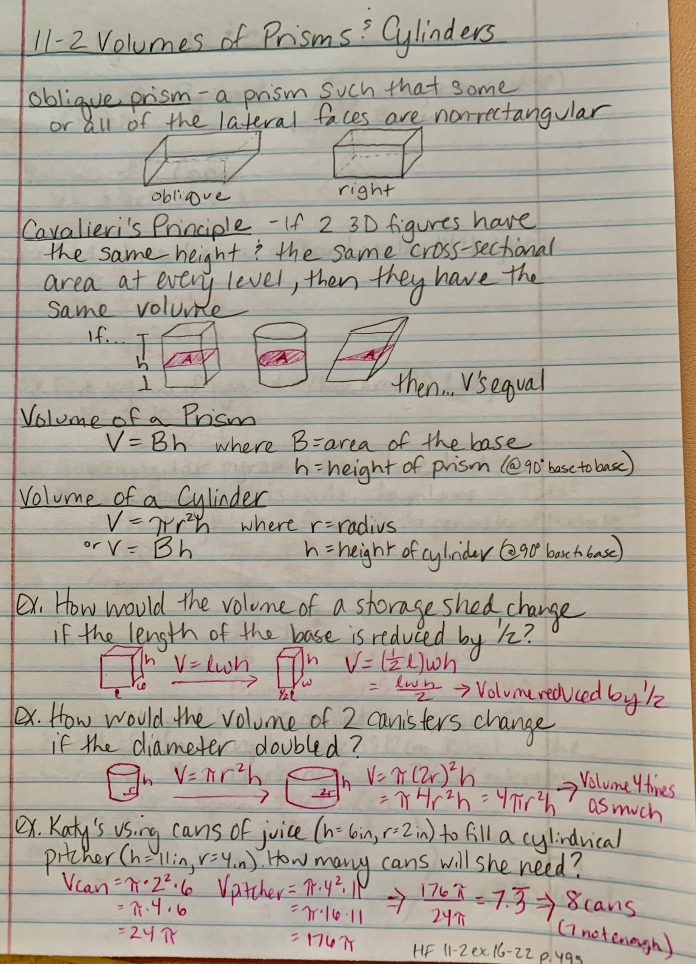 11-2 Volumes of Prisms & Cylinders
oblique prism - a prism such that some
or all of the lateral faces are non-rectangular
oblique
right
Cavalieri's Principle - If 2 3D figures have
the same height & the same cross-sectional
area at every level, then they have the
same volume
If...
h
A
A
A
then... V's equal
Volume of a Prism
V = Bh where B = area of the base
h = height of prism (@ 90° base to base)
Volume of a Cylinder
V = πr²h where r = radius
or V = Bh h = height of cylinder (@ 90° base to base)
Ex. How would the volume of a storage shed change
if the length of the base is reduced by 1/2?
h
w
l
V = lwh
h
w
1/2 l
V = (1/2 l)wh
= lwh/2 → Volume reduced by 1/2
Ex. How would the volume of 2 canisters change
if the diameter doubled?
r
h
V = πr²h
2r
h
V = π(2r)²h
= π4r²h = 4πr²h
→ Volume 4 times
as much
Ex. Katy's using cans of juice (h = 6in, r = 2in) to fill a cylindrical
pitcher (h = 11in, r = 4in). How many cans will she need?
Vcan = π·2²·6 Vpitcher = π·4²·11
= π·4·6 = π·16·11
= 24π = 176π
⇒ 176π/24π = 7.3̅ ⇒ 8 cans
(7 not enough)
HF 11-2 ex. 16-22 p. 499